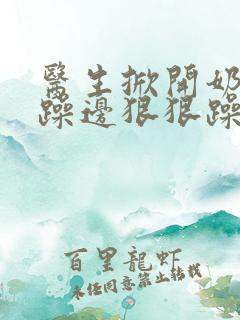 醫生掀開奶
躁邊狠狠躁
百里龍虾
未任同意禁止转载